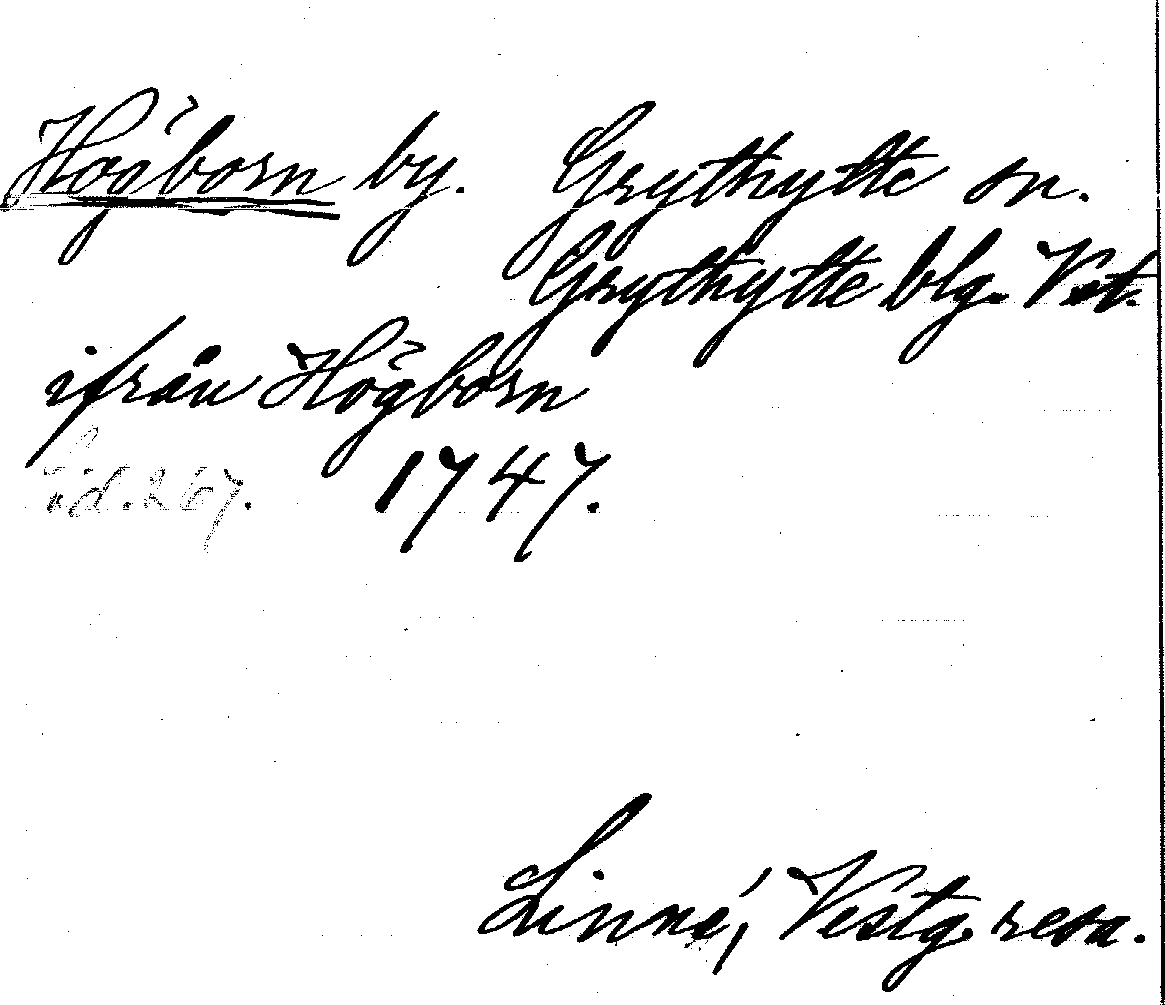 Högborn by. Grythytte sn.
Grythytte blg. Vst.
ifrån Högborn
sid. 267. 1747.
Linné, Vestg. resa.